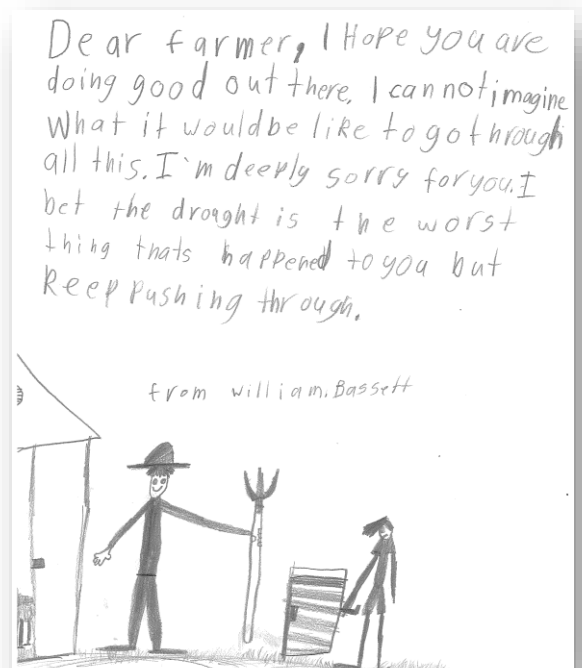 Dear farmer, I Hope you are
doing good out there. I can not imagine
What it would be like to go through
all this. I'm deeply sorry for you. I
bet the drought is the worst
thing thats happened to you but
Keep pushing through.
from William. Bassett